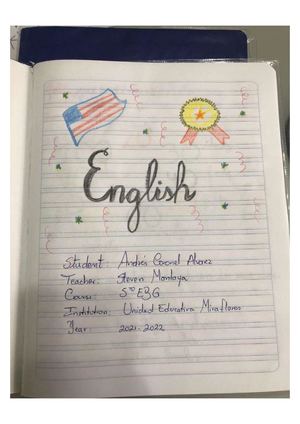 English
Student: Andrés Coronel Alvarez
Teacher: Steven Montoya
Course: 5to EBG
Institution: Unidad Educativa Miraflores
Year: 2021-2022